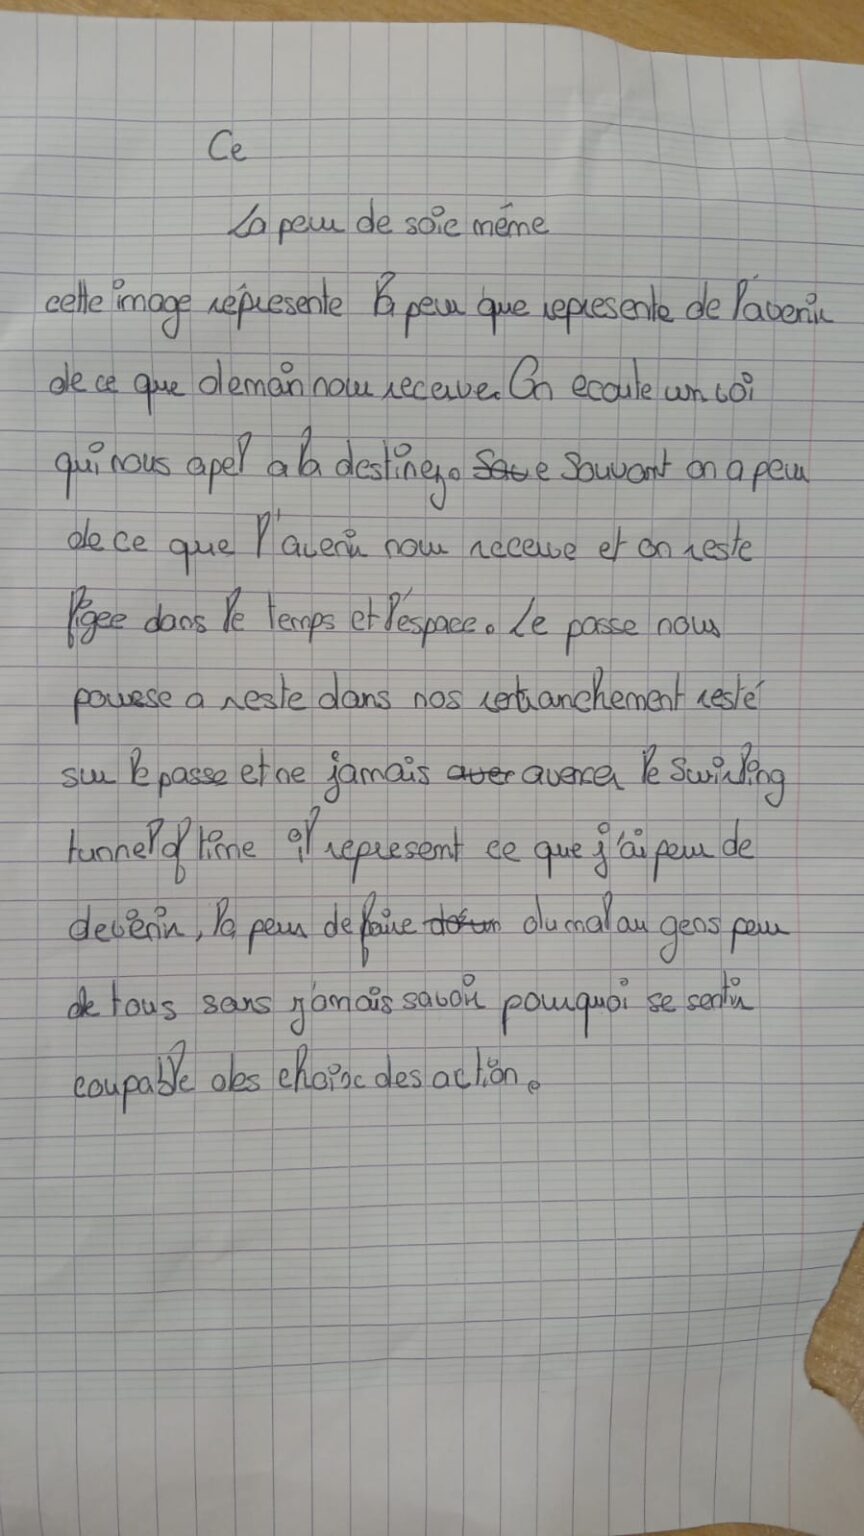 Ce
La peur de soie même
cette image réprésente la peur que represente de l'avenir
de ce que demain nous receuve. On ecoute un voi
qui nous apel a la destinez. souvant on a peur
de ce que l'avenir nous receuve et on reste
figee dans le temps et l'espace. Le passe nous
pousse a reste dans nos retranchement resté
sur le passe et ne jamais avencer le swirling
tunnel of time il represent ce que j'ai peur de
devenir, la peur de faire du mal au gens peur
de tous sans jamais savoir pourquoi se sentir
coupable des choix des action.